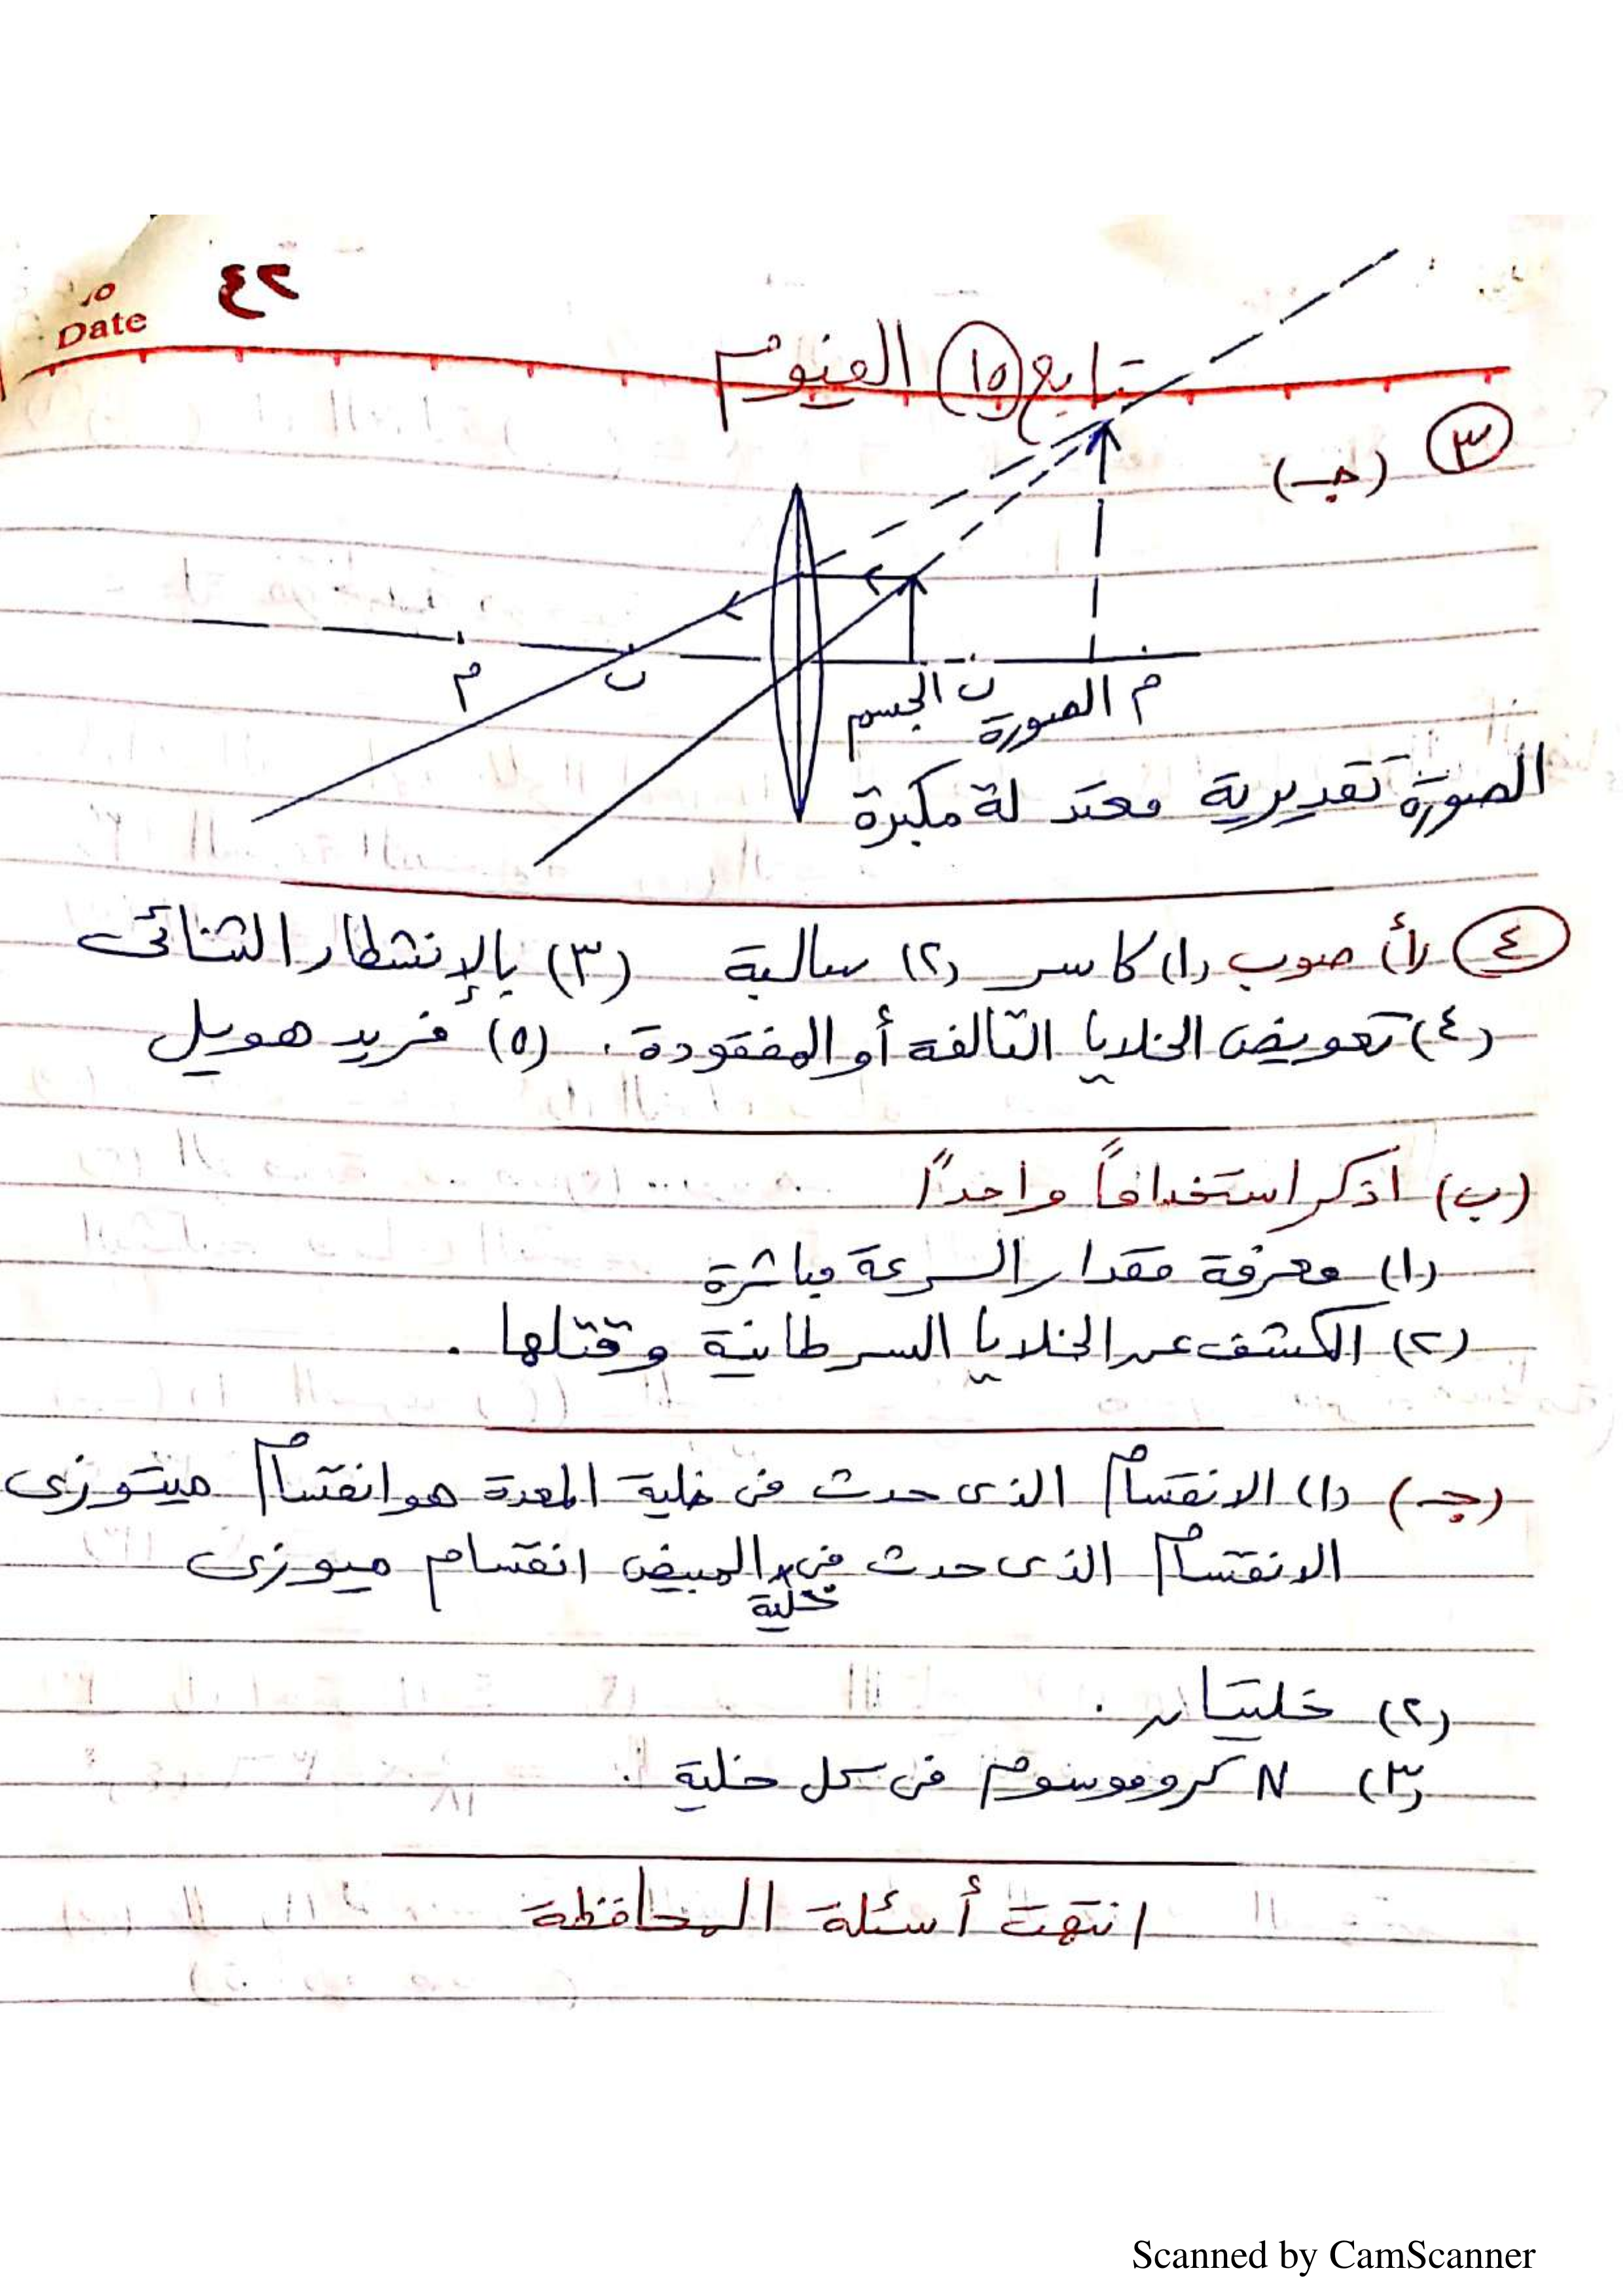 ٢٤
No
Date
تابع (١٥) الفيوم
(٣) (جـ)
م ب م الصورة ب الجسم
الصورة تقديرية معتدلة مكبرة
(٤) (أ) صوب (١) كاسر (٢) سالبة (٣) بالإنشطار الثنائى
(٤) تعويض الخلايا التالفة أو المفقودة. (٥) فريد هويل
(ب) اذكر استخداماً واحداً
(١) معرفة مقدار السرعة مباشرة
(٢) الكشف عن الخلايا السرطانية وقتلها.
(جـ) (١) الانقسام الذى حدث فى خلية المعدة هو انقسام ميتوزى
الانقسام الذى حدث فى خلية المبيض انقسام ميوزى
(٢) خليتان.
(٣) N كروموسوم فى كل خلية.
انتهت أسئلة المحافظة
Scanned by CamScanner